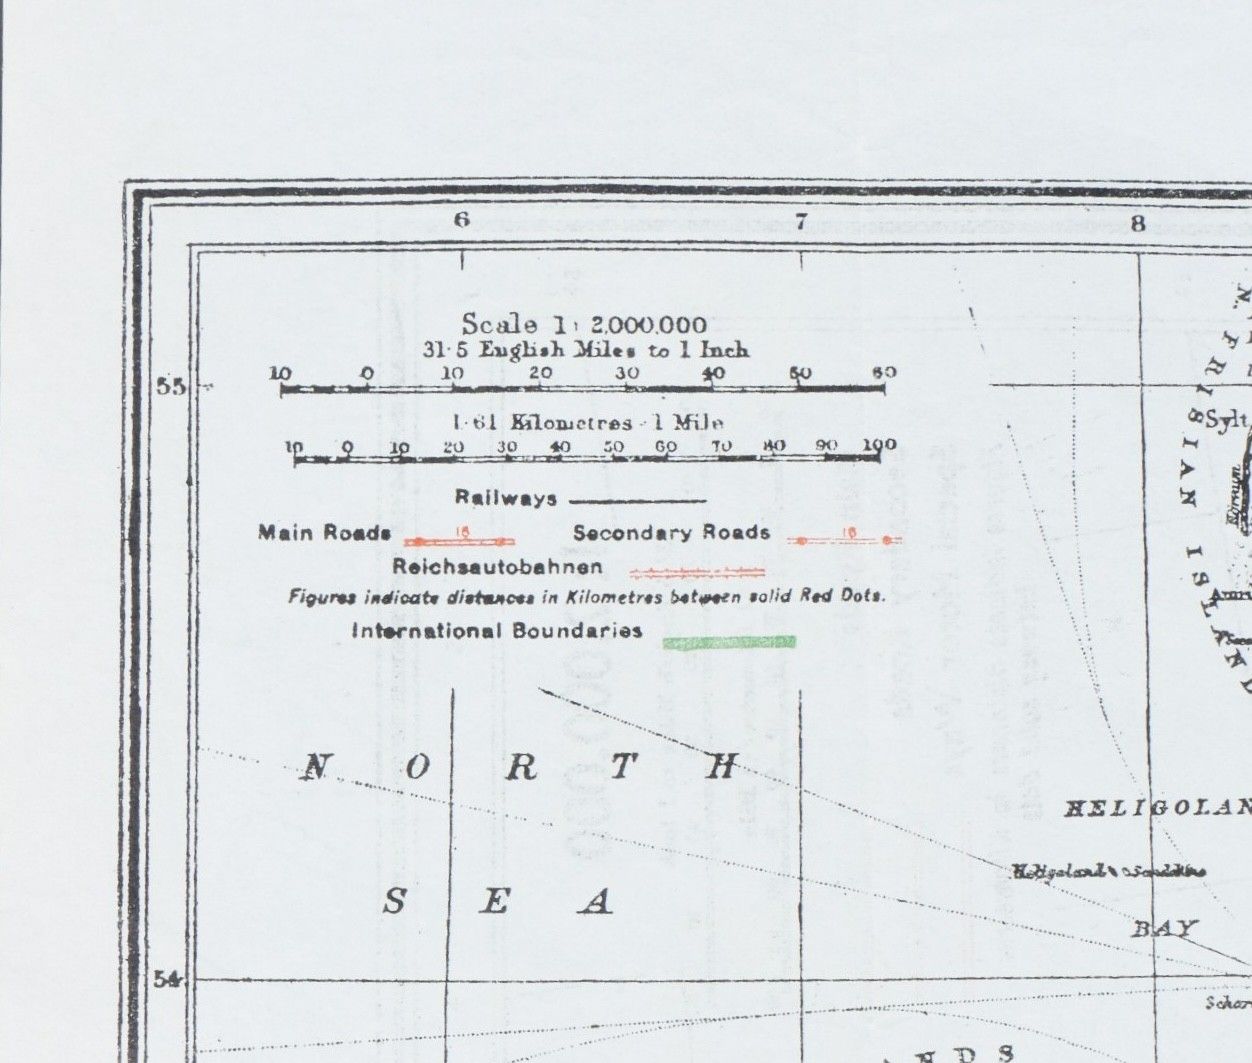 6 7 8
Scale 1:2,000,000
31·5 English Miles to 1 Inch
10 0 10 20 30 40 50 60
55
1·61 Kilometres - 1 Mile
10 0 10 20 30 40 50 60 70 80 90 100
Railways
Main Roads 16 Secondary Roads 16
Reichsautobahnen
Figures indicate distances in Kilometres between solid Red Dots.
International Boundaries
N. FRISIAN ISLAND
Sylt
NORTH
SEA
HELIGOLAN
Heligoland
BAY
54
Schar
NDS